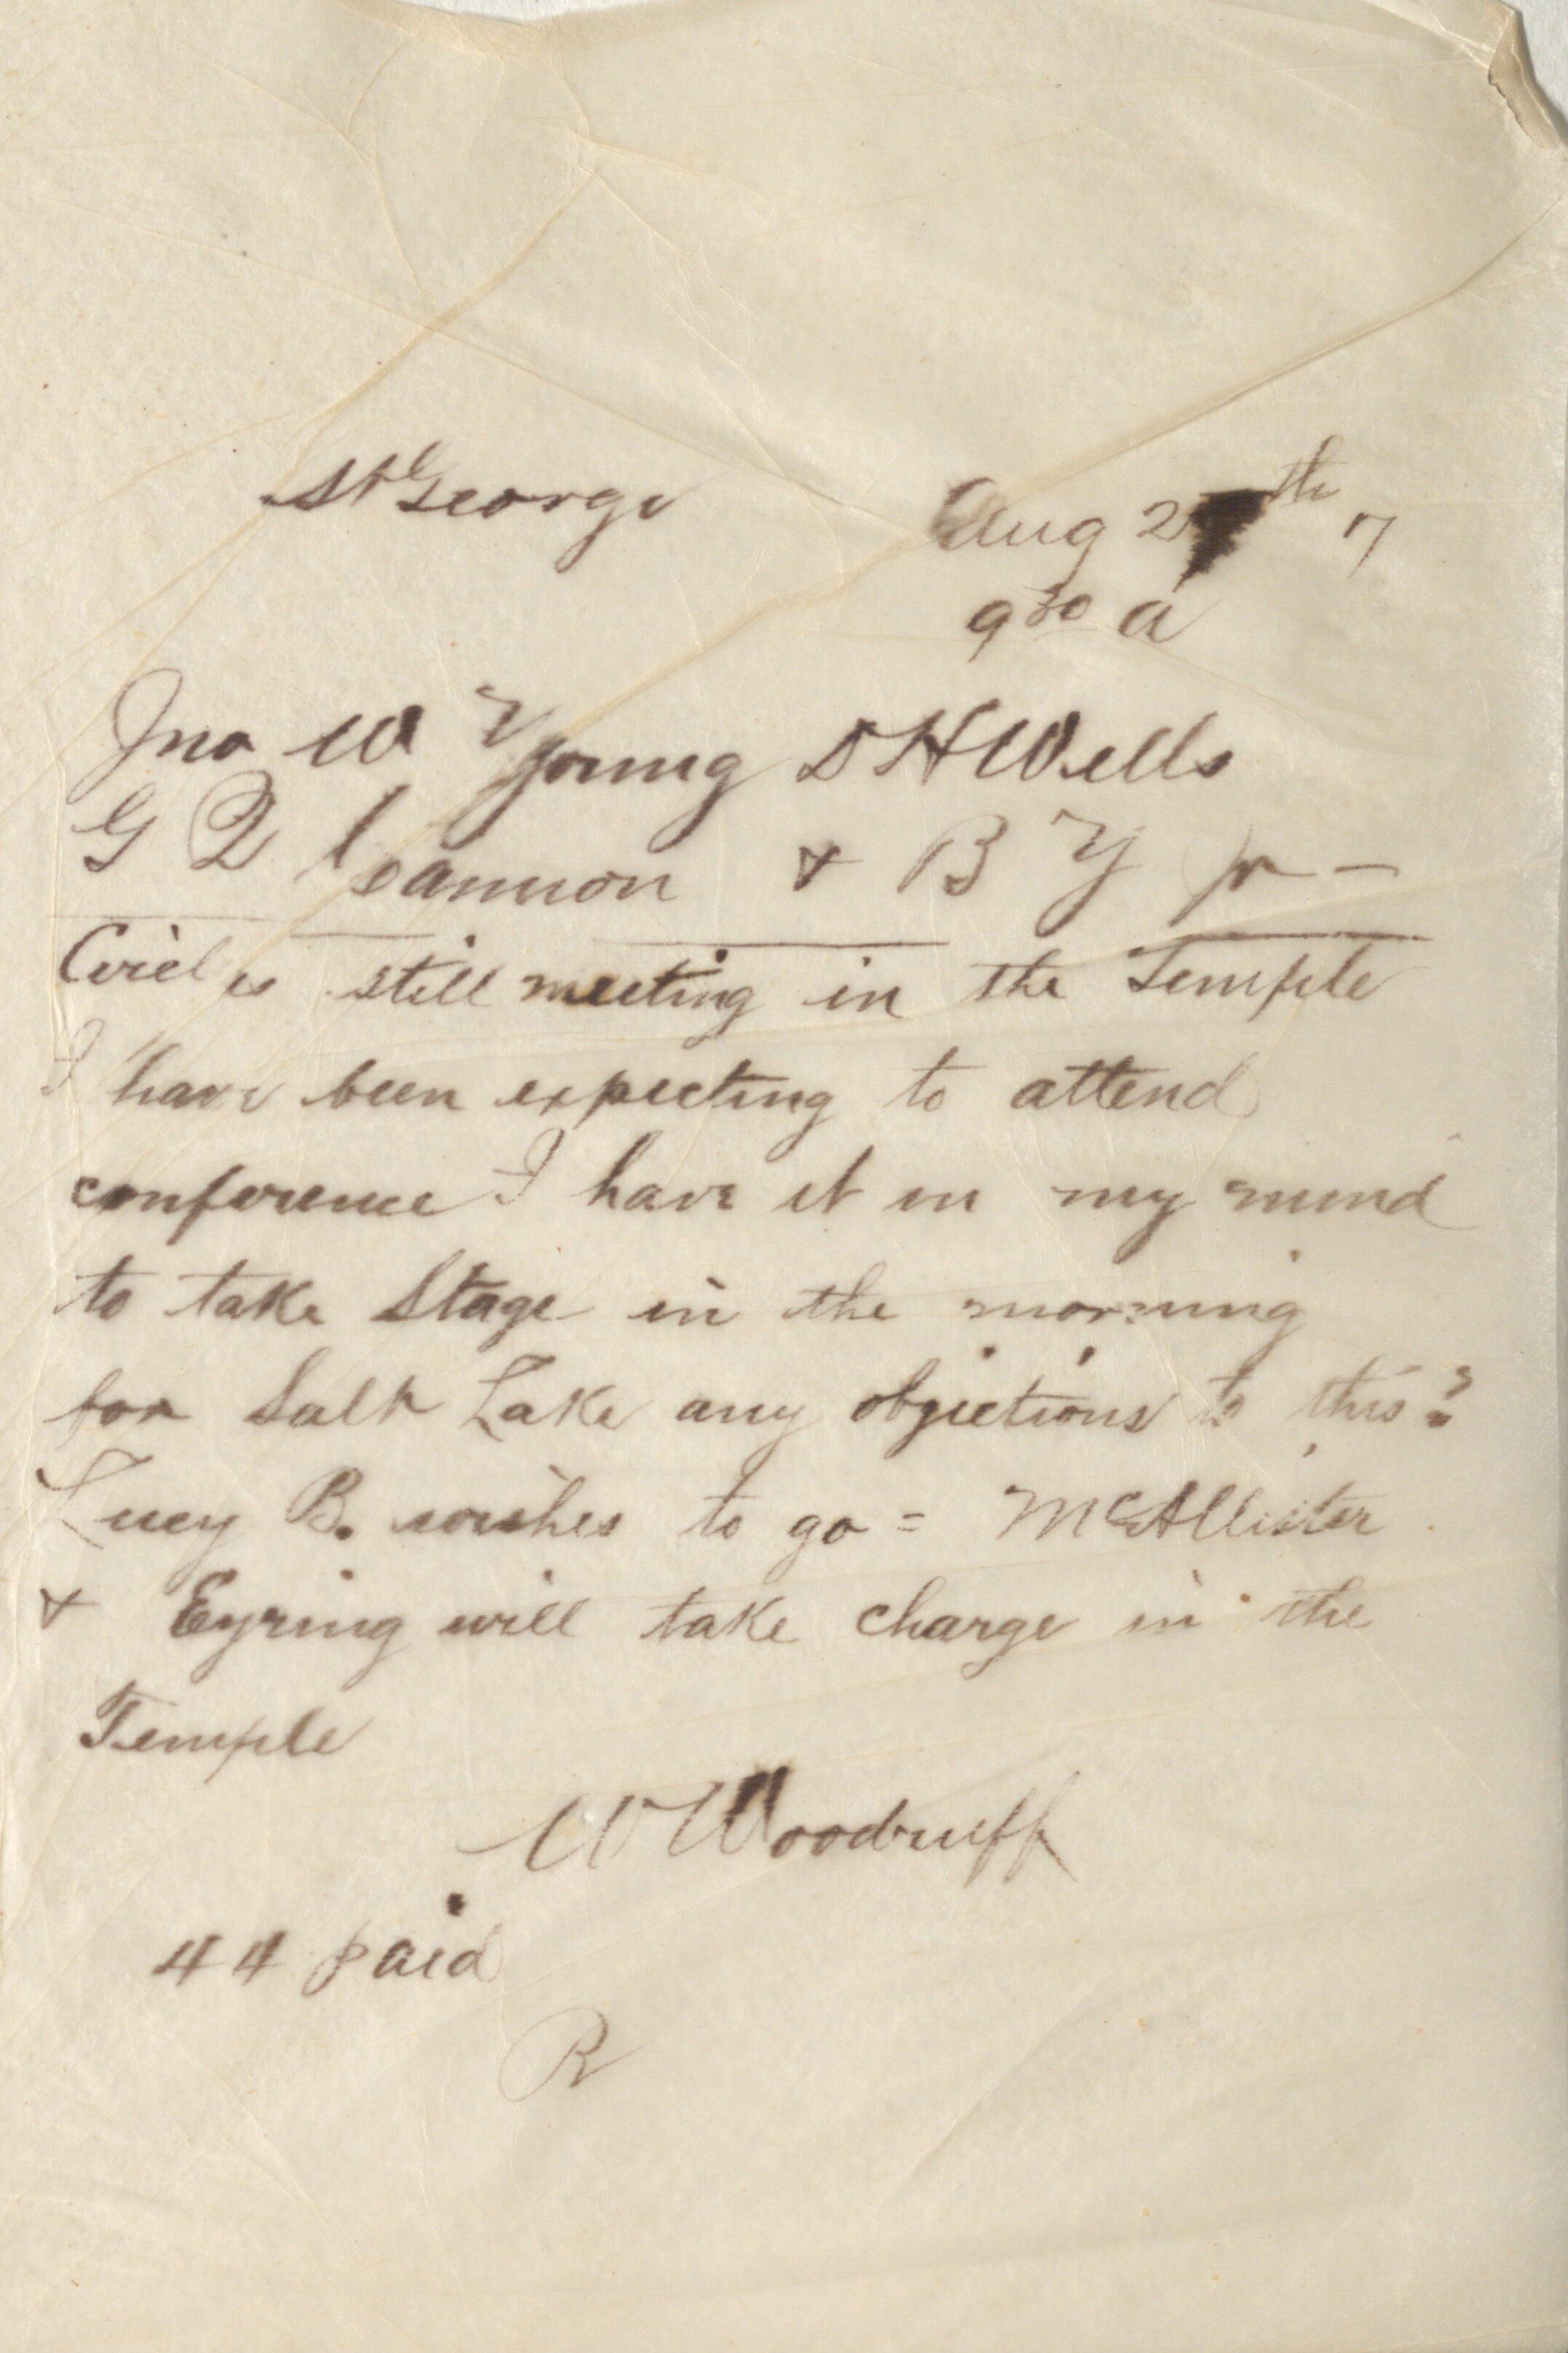 St George Aug 2 th 7
9 30 a
Jno W Young D H Wells
G Q Cannon & B Y jr —
is still meeting in the Temple
I have been expecting to attend
conference I have it in my mind
to take Stage in the morning
for Salt Lake any objections to this?
Lucy B. wishes to go = McAllister
& Eyring will take charge in the
Temple
W Woodruff
44 paid
R